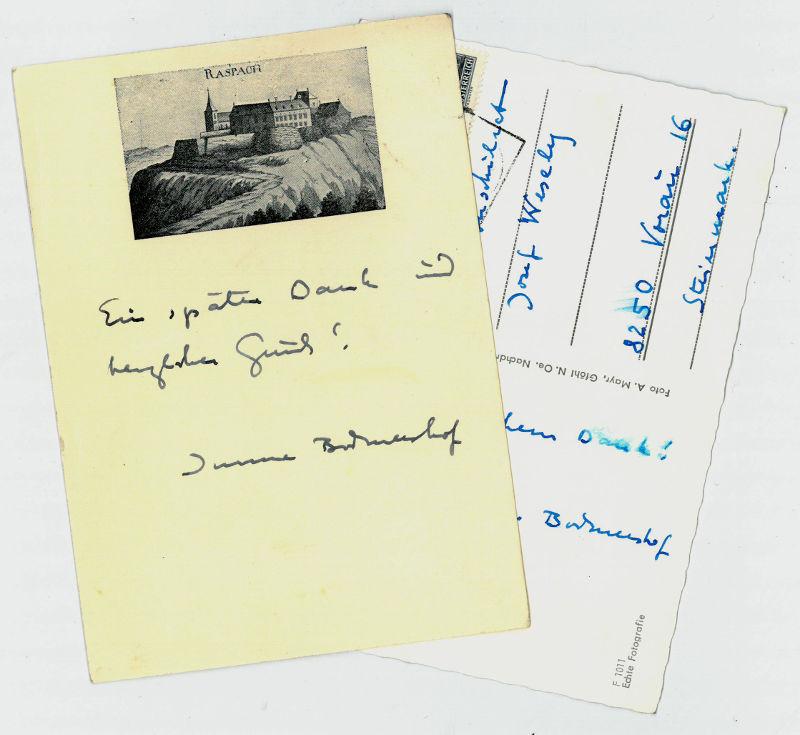 RASPACH
Ein später Dank und
herzlicher Gruß!
Imma Bodmershof
ÖSTERREICH
Josef Wesely
8250 Vorau 16
Steiermark.
Foto A. Mayr, Gföhl N. Oe. Nachdr
Dank!
Bodmershof
F 1011
Echte Fotografie